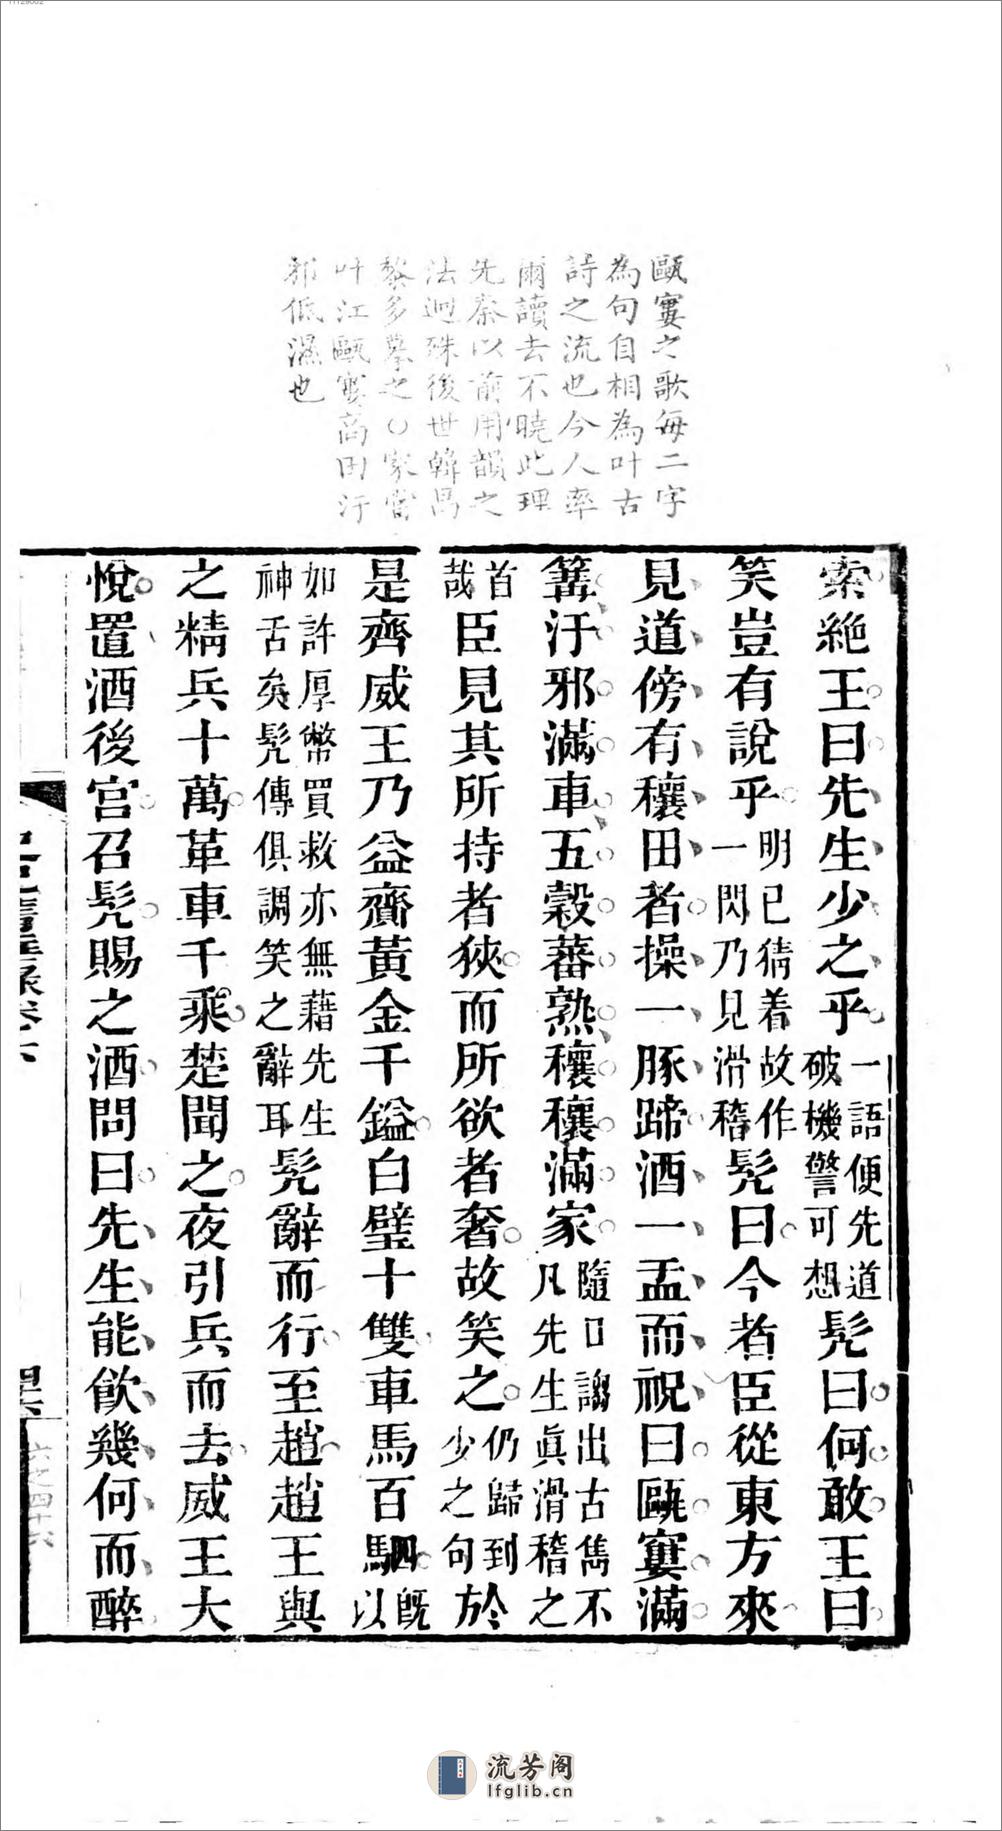 11129002
甌窶之歌每二字
為句自相為叶古
詩之流也今人率
爾讀去不曉此理
先秦以前用韻之
法迥殊後世韓昌
黎多摹之○家當
叶江甌窶高田汙
邪低濕也
索絶王曰先生少之乎一語便先道破機警可想髡曰何敢王曰
笑豈有說乎明已猜着故作一閃乃見滑稽髡曰今者臣從東方來
見道傍有穰田者操一豚蹄酒一盂而祝曰甌窶滿
篝汙邪滿車五穀蕃熟穰穰滿家隨口謅出古雋不凡先生眞滑稽之
首哉臣見其所持者狹而所欲者奢故笑之仍歸到少之句於
是齊威王乃益齎黃金千鎰白璧十雙車馬百駟旣以
如許厚幣買救亦無藉先生神舌矣髡傳俱調笑之辭耳髡辭而行至趙趙王與
之精兵十萬革車千乘楚聞之夜引兵而去威王大
悅置酒後宮召髡賜之酒問曰先生能飲幾何而醉
卷六
六之四十六
流芳阁
lfglib.cn